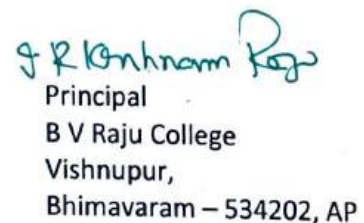 I R Krishnam Raju
Principal
B V Raju College
Vishnupur,
Bhimavaram – 534202, AP